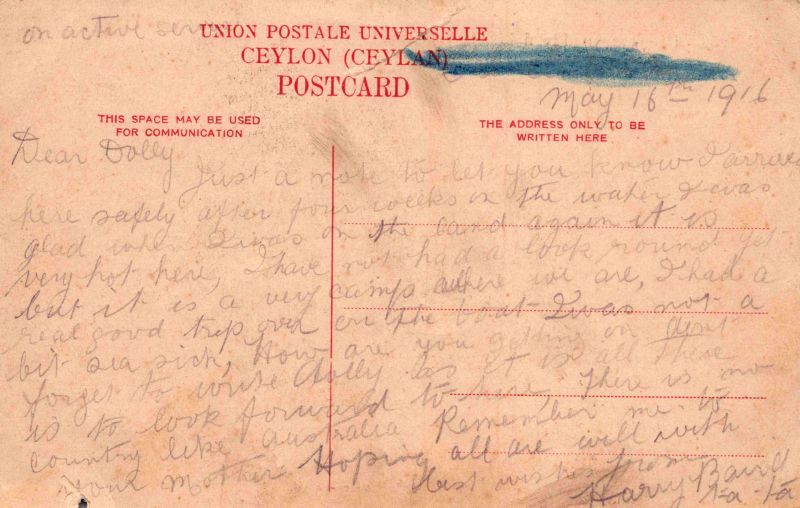 on active service
UNION POSTALE UNIVERSELLE
CEYLON (CEYLAN)
POSTCARD
May 16th 1916
THIS SPACE MAY BE USED
FOR COMMUNICATION
THE ADDRESS ONLY TO BE
WRITTEN HERE
Dear Dolly
Just a note to let you know I arrived
here safely after four weeks on the water & was
glad when I was on the land again it is
very hot here, I have not had a look round yet
but it is a very camp where we are, I had a
real good trip over on the boat I was not a
bit sea sick, How are you getting on dont
forget to write dolly as it is all there
is to look forward to here There is no
country like Australia Remember me to
your Mother Hoping all are well with
best wishes from
Harry Baird
ta-ta